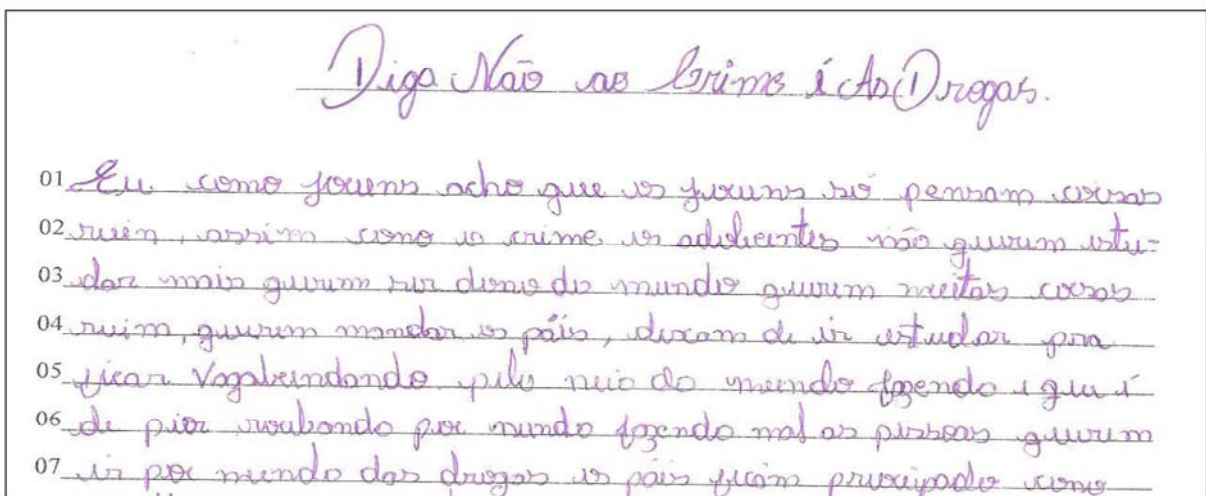 Diga Não ao Crime é As Drogas.
01 Eu como jovens acho que os jovens só pensam coisas
02 ruien, assim como o crime os adoleientes não querem estu-
03 dar mais querem ser dono do mundo querem muitas coisas
04 ruim, querem mandar os páis, dexam de ir estudar pra
05 ficar Vagabundando pelo meio do mundo fazendo o que é
06 de pior roubando por mundo fazendo mal as pessoas querem
07 ir por mundo das drogas os páis ficam preocupado como